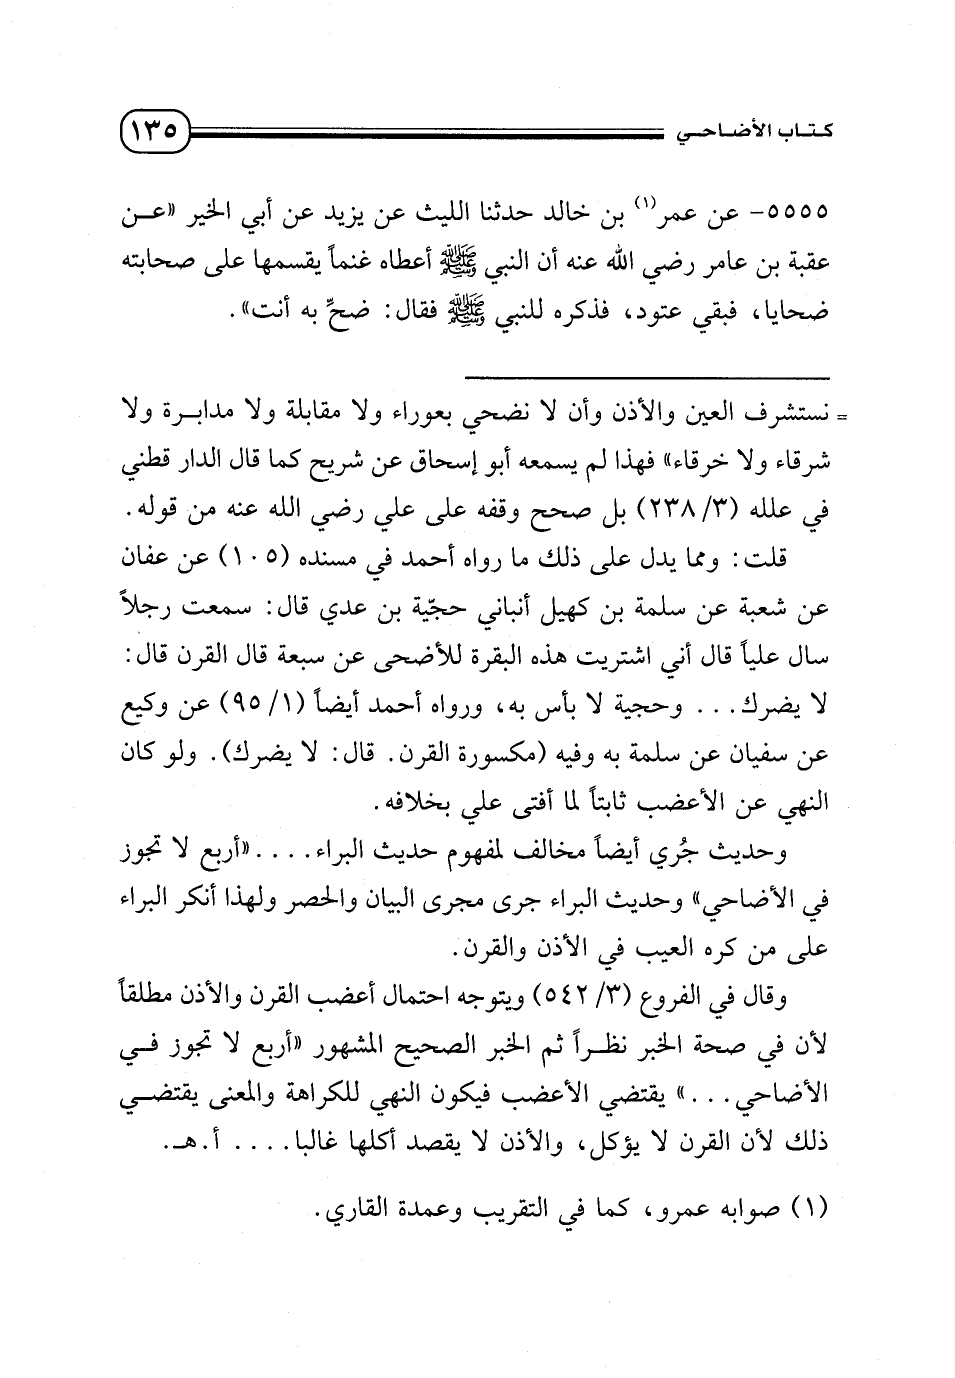 كتاب الأضاحي ١٣٥
٥٥٥٥- عن عمر(١) بن خالد حدثنا الليث عن يزيد عن أبي الخير «عن
عقبة بن عامر رضي الله عنه أن النبي ﷺ أعطاه غنماً يقسمها على صحابته
ضحايا، فبقي عتود، فذكره للنبي ﷺ فقال: ضحِّ به أنت».
= نستشرف العين والأذن وأن لا نضحي بعوراء ولا مقابلة ولا مدابرة ولا
شرقاء ولا خرقاء» فهذا لم يسمعه أبو إسحاق عن شريح كما قال الدار قطني
في علله (٣/ ٢٣٨) بل صحح وقفه على علي رضي الله عنه من قوله.
قلت: ومما يدل على ذلك ما رواه أحمد في مسنده (١٠٥) عن عفان
عن شعبة عن سلمة بن كهيل أنباني حجيّة بن عدي قال: سمعت رجلاً
سال علياً قال أني اشتريت هذه البقرة للأضحى عن سبعة قال القرن قال:
لا يضرك... وحجية لا بأس به، ورواه أحمد أيضاً (١/ ٩٥) عن وكيع
عن سفيان عن سلمة به وفيه (مكسورة القرن. قال: لا يضرك). ولو كان
النهي عن الأعضب ثابتاً لما أفتى علي بخلافه.
وحديث جُري أيضاً مخالف لمفهوم حديث البراء.... «أربع لا تجوز
في الأضاحي» وحديث البراء جرى مجرى البيان والحصر ولهذا أنكر البراء
على من كره العيب في الأذن والقرن.
وقال في الفروع (٣/ ٥٤٢) ويتوجه احتمال أعضب القرن والأذن مطلقاً
لأن في صحة الخبر نظراً ثم الخبر الصحيح المشهور «أربع لا تجوز في
الأضاحي...» يقتضي الأعضب فيكون النهي للكراهة والمعنى يقتضي
ذلك لأن القرن لا يؤكل، والأذن لا يقصد أكلها غالبا.... أ.هـ.
(١) صوابه عمرو، كما في التقريب وعمدة القاري.